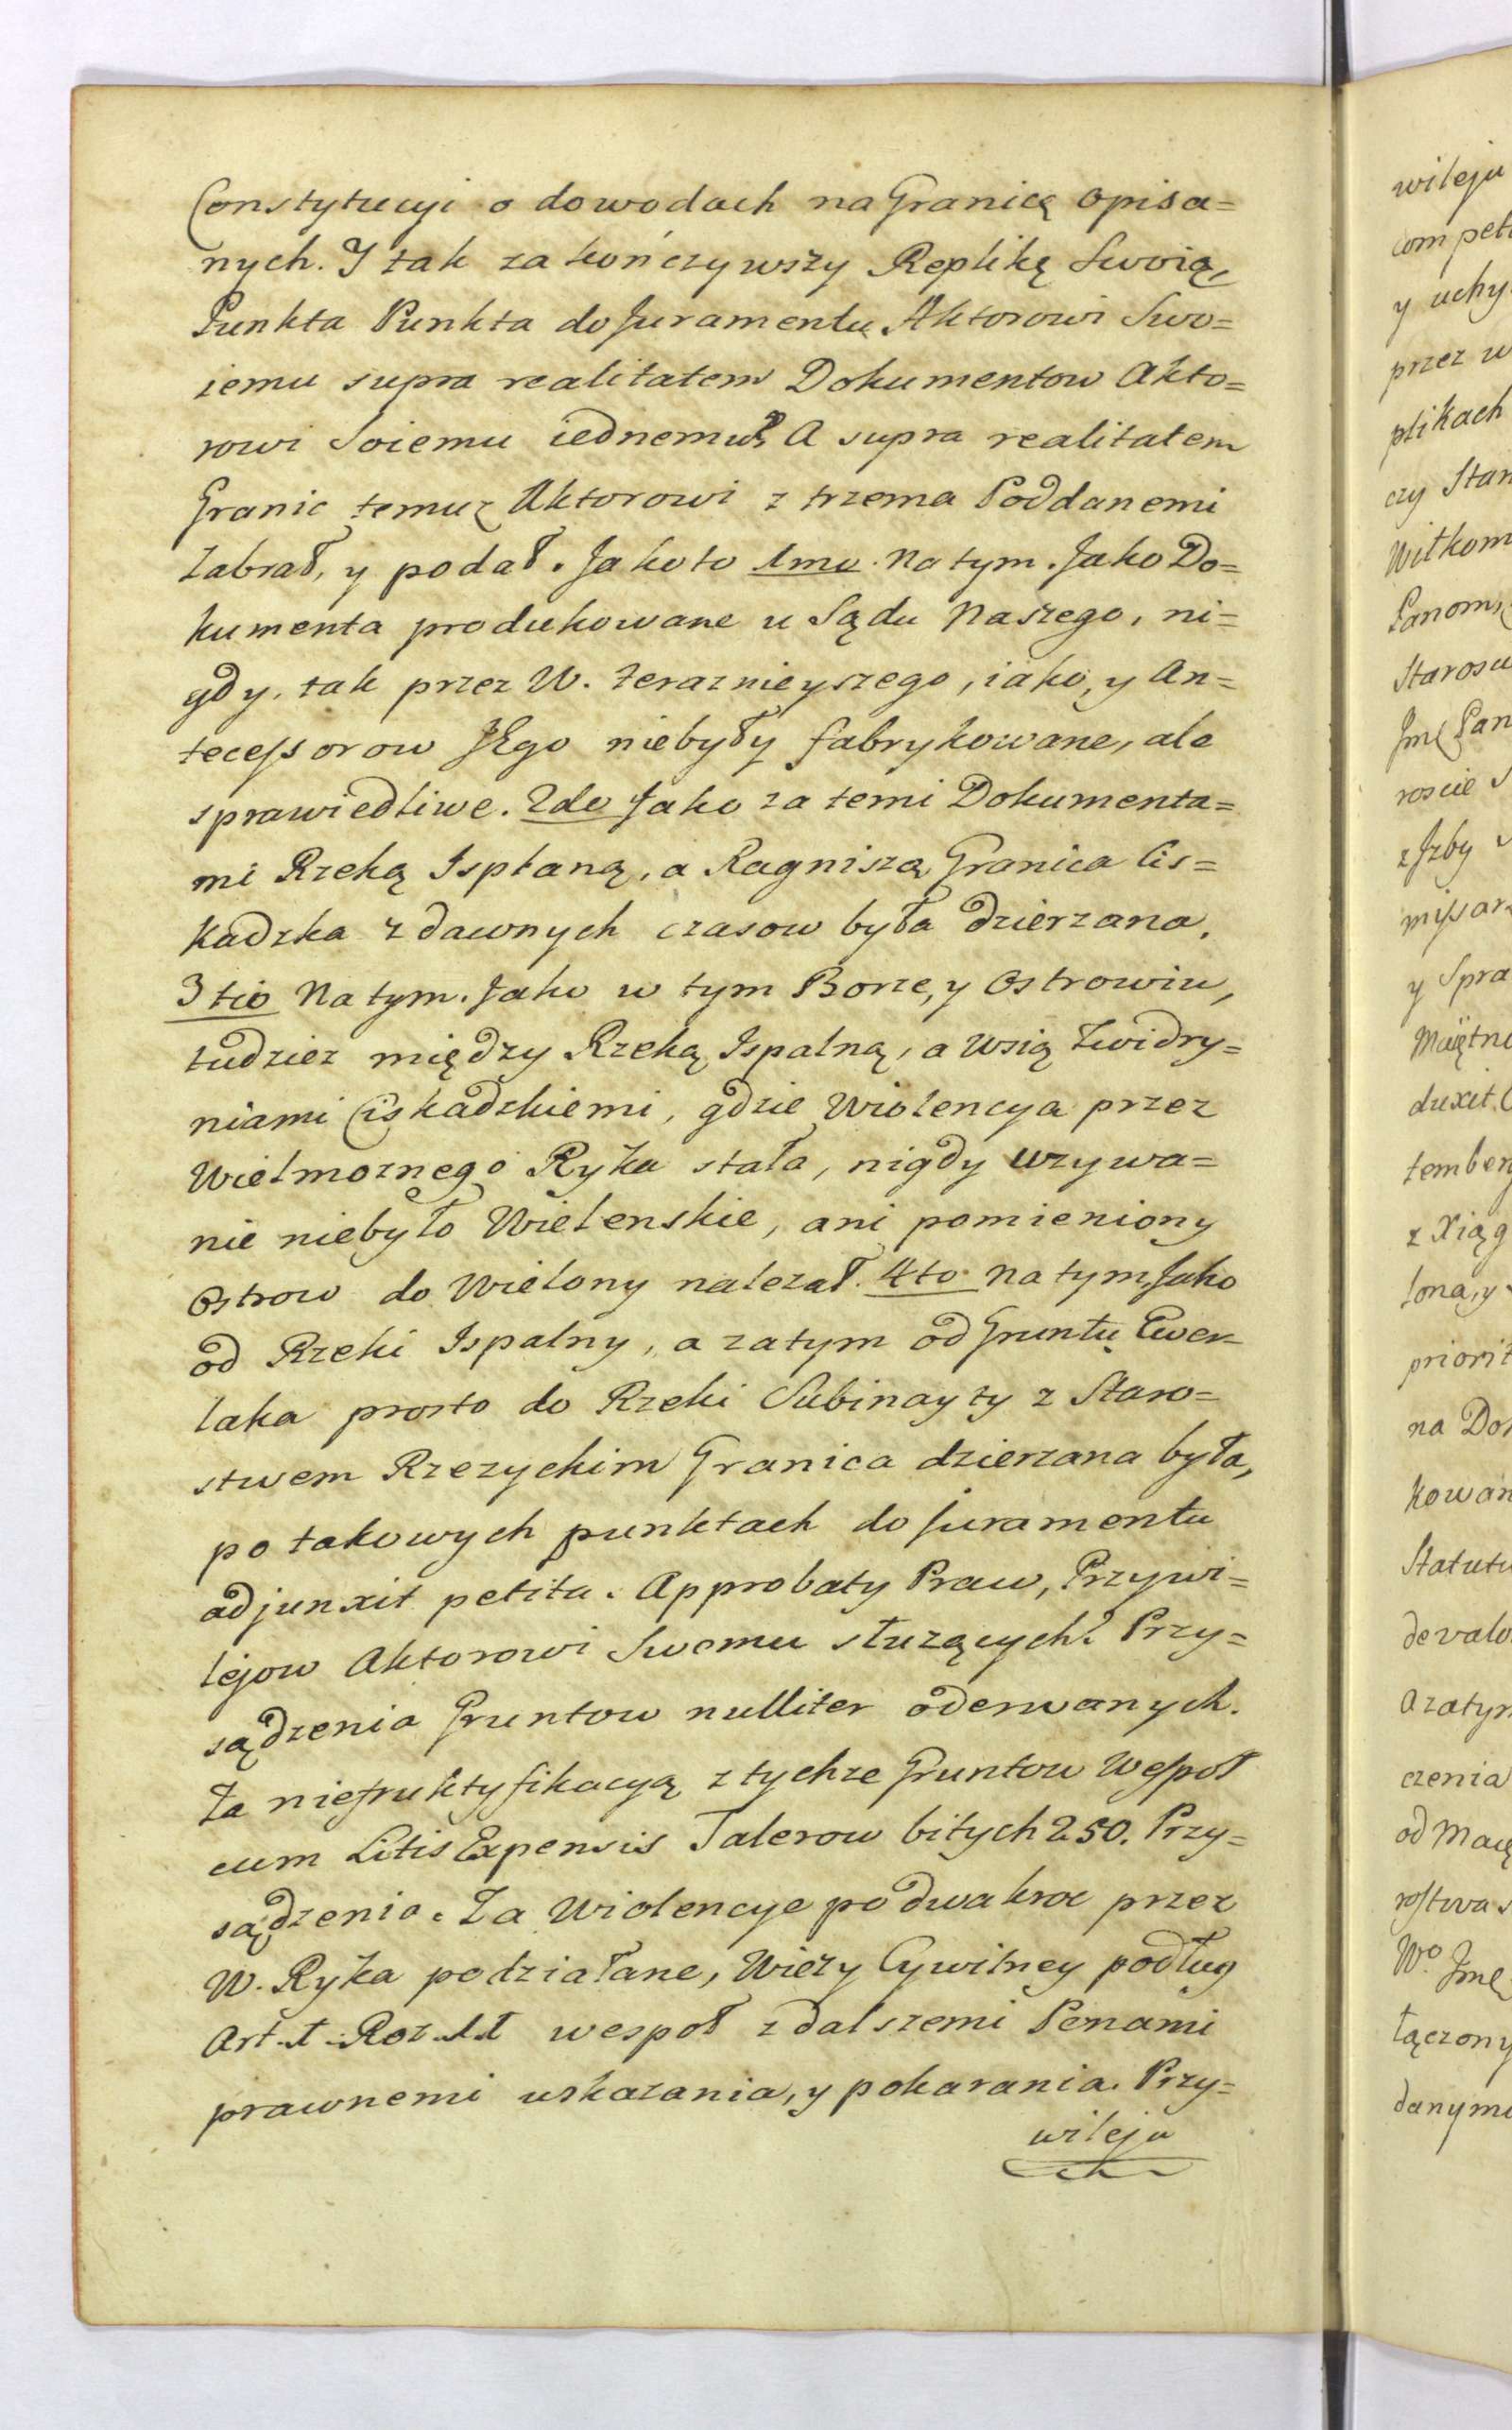 Constytucyi o dowodach na Granicę opisa=
nych. I tak zakończywszy Replikę Swoią,
Punkta Punkta do Juramentu Aktorowi Swo=
iemu supra realitatem Dokumentow Akto=
rowi Soiemu iednemu? A supra realitatem
Granic temuz Aktorowi z trzema Poddanemi
Zabrał, y podał. Jako to 1mo. Na tym. Jako Do=
kumenta produkowane u Sądu Naszego, ni=
gdy, tak przez W. Teraznieyszego, iako, y An=
tecessorow JEgo niebyły fabrykowane, ale
sprawiedliwe. 2do Jako za temi Dokumenta=
mi Rzeką Ispłaną, a Ragniszą Granica Cis=
kadzka z dawnych czasow była dzierzana.
3tio Na tym. Jako w tym Borze, y Ostrowiu,
tudziez między Rzeką Ispalną, a Wsią Zwidry=
niami Ciskadzkiemi, gdzie Wiolencya przez
Wielmoznego Ryka stała, nigdy uzywa=
nie niebyło Wielenskie, ani pomieniony
Ostrow do Wielony nalezał. 4to. Na tym Jako
od Rzeki Ispalny, a zatym od Gruntu Ewer
laka prosto do Rzeki Subinayty z Staro=
stwem Rzezyckim Granica dzierzana była,
po takowych punktach do Juramentu
adjunxit petita. Approbaty Praw, Przywi=
lejow Aktorowi Swemu słuzących? Przy=
sądzenia Gruntow nulliter oderwanych.
Za niefruktyfikacyą z tychze Gruntow Wespoł
cum Litis Expensis Talerow bitych 250. Przy=
sądzenia. Za Wiolencye po dwakroc przez
W. Ryka podziałane, Wiezy Cywilney podług
Art. 1. Roz. 11 wespoł z dalszemi Penami
prawnemi uskazania, y pokarania. Przy=
wileju
wileju
compet
y uchy
przez w
plikach
czy Star
Wiłkom
Panom
Starosc
Jmć Pan
roscie S
z Jzby
missar
y Spra
Maiętn
duxit. C
tember
z Xiąg
lona, y
priorit
na Dok
kowan
Statutu
devalo
a zatym
czenia
od Maię
rostwa s
Wo. Jmć
łączony
danymi